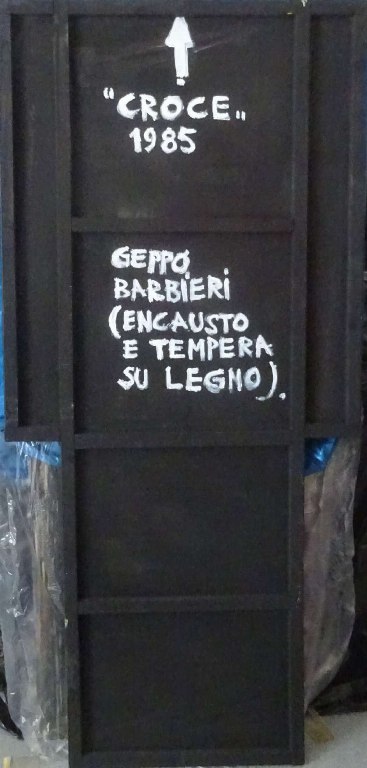 "CROCE"
1985
GEPPO
BARBIERI
(ENCAUSTO
E TEMPERA
SU LEGNO).